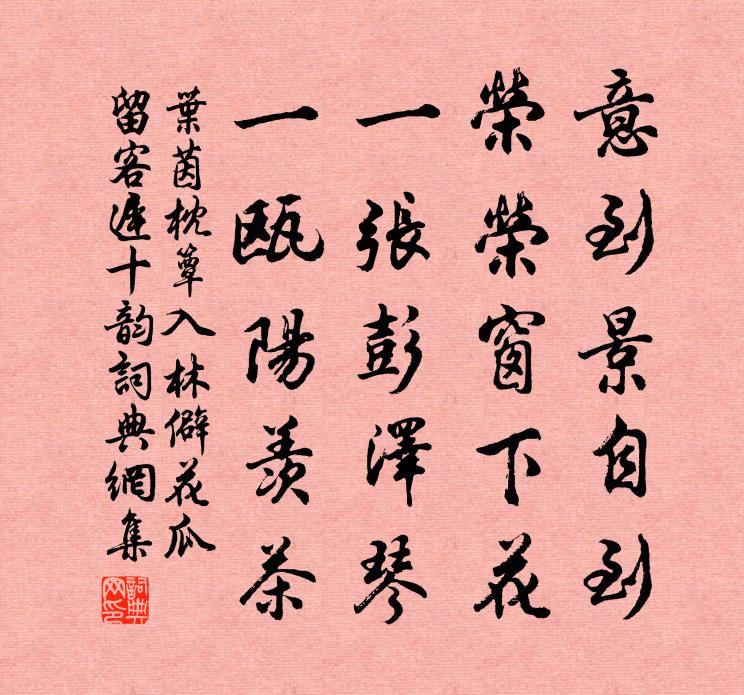 意到景自到
榮榮窗下花
一張彭澤琴
一甌陽羨茶
葉茵枕簟入林僻花瓜
留客遲十韵詞典網集
詞典
網印